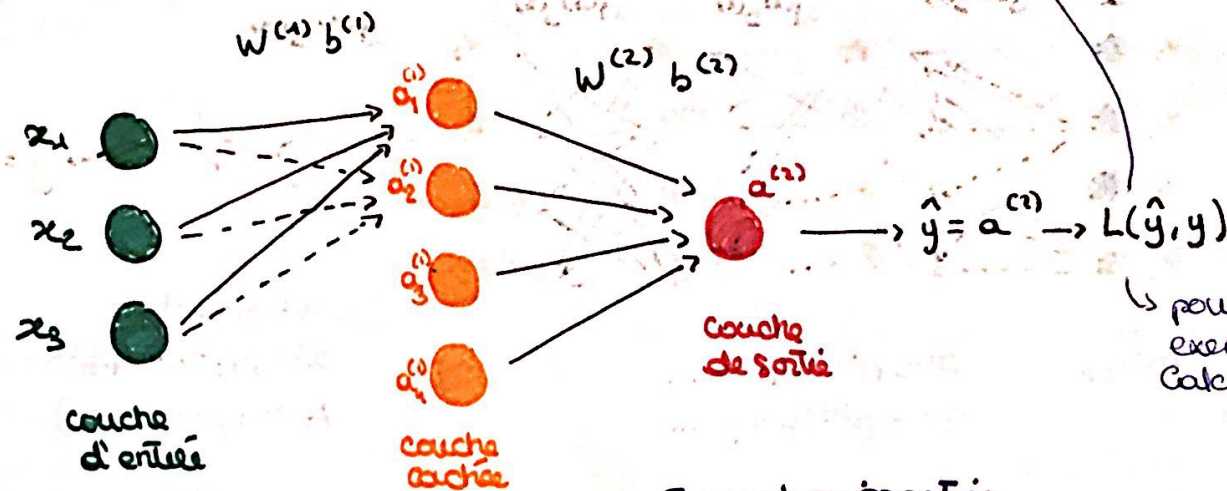 W⁽¹⁾ b⁽¹⁾
W⁽²⁾ b⁽²⁾
x₁
x₂
x₃
a₁⁽¹⁾
a₂⁽¹⁾
a₃⁽¹⁾
a₄⁽¹⁾
a⁽²⁾
ŷ = a⁽²⁾ → L(ŷ, y)
↳ pou
exe
Calc
couche
d'entrée
couche
cachée
couche
de sortie